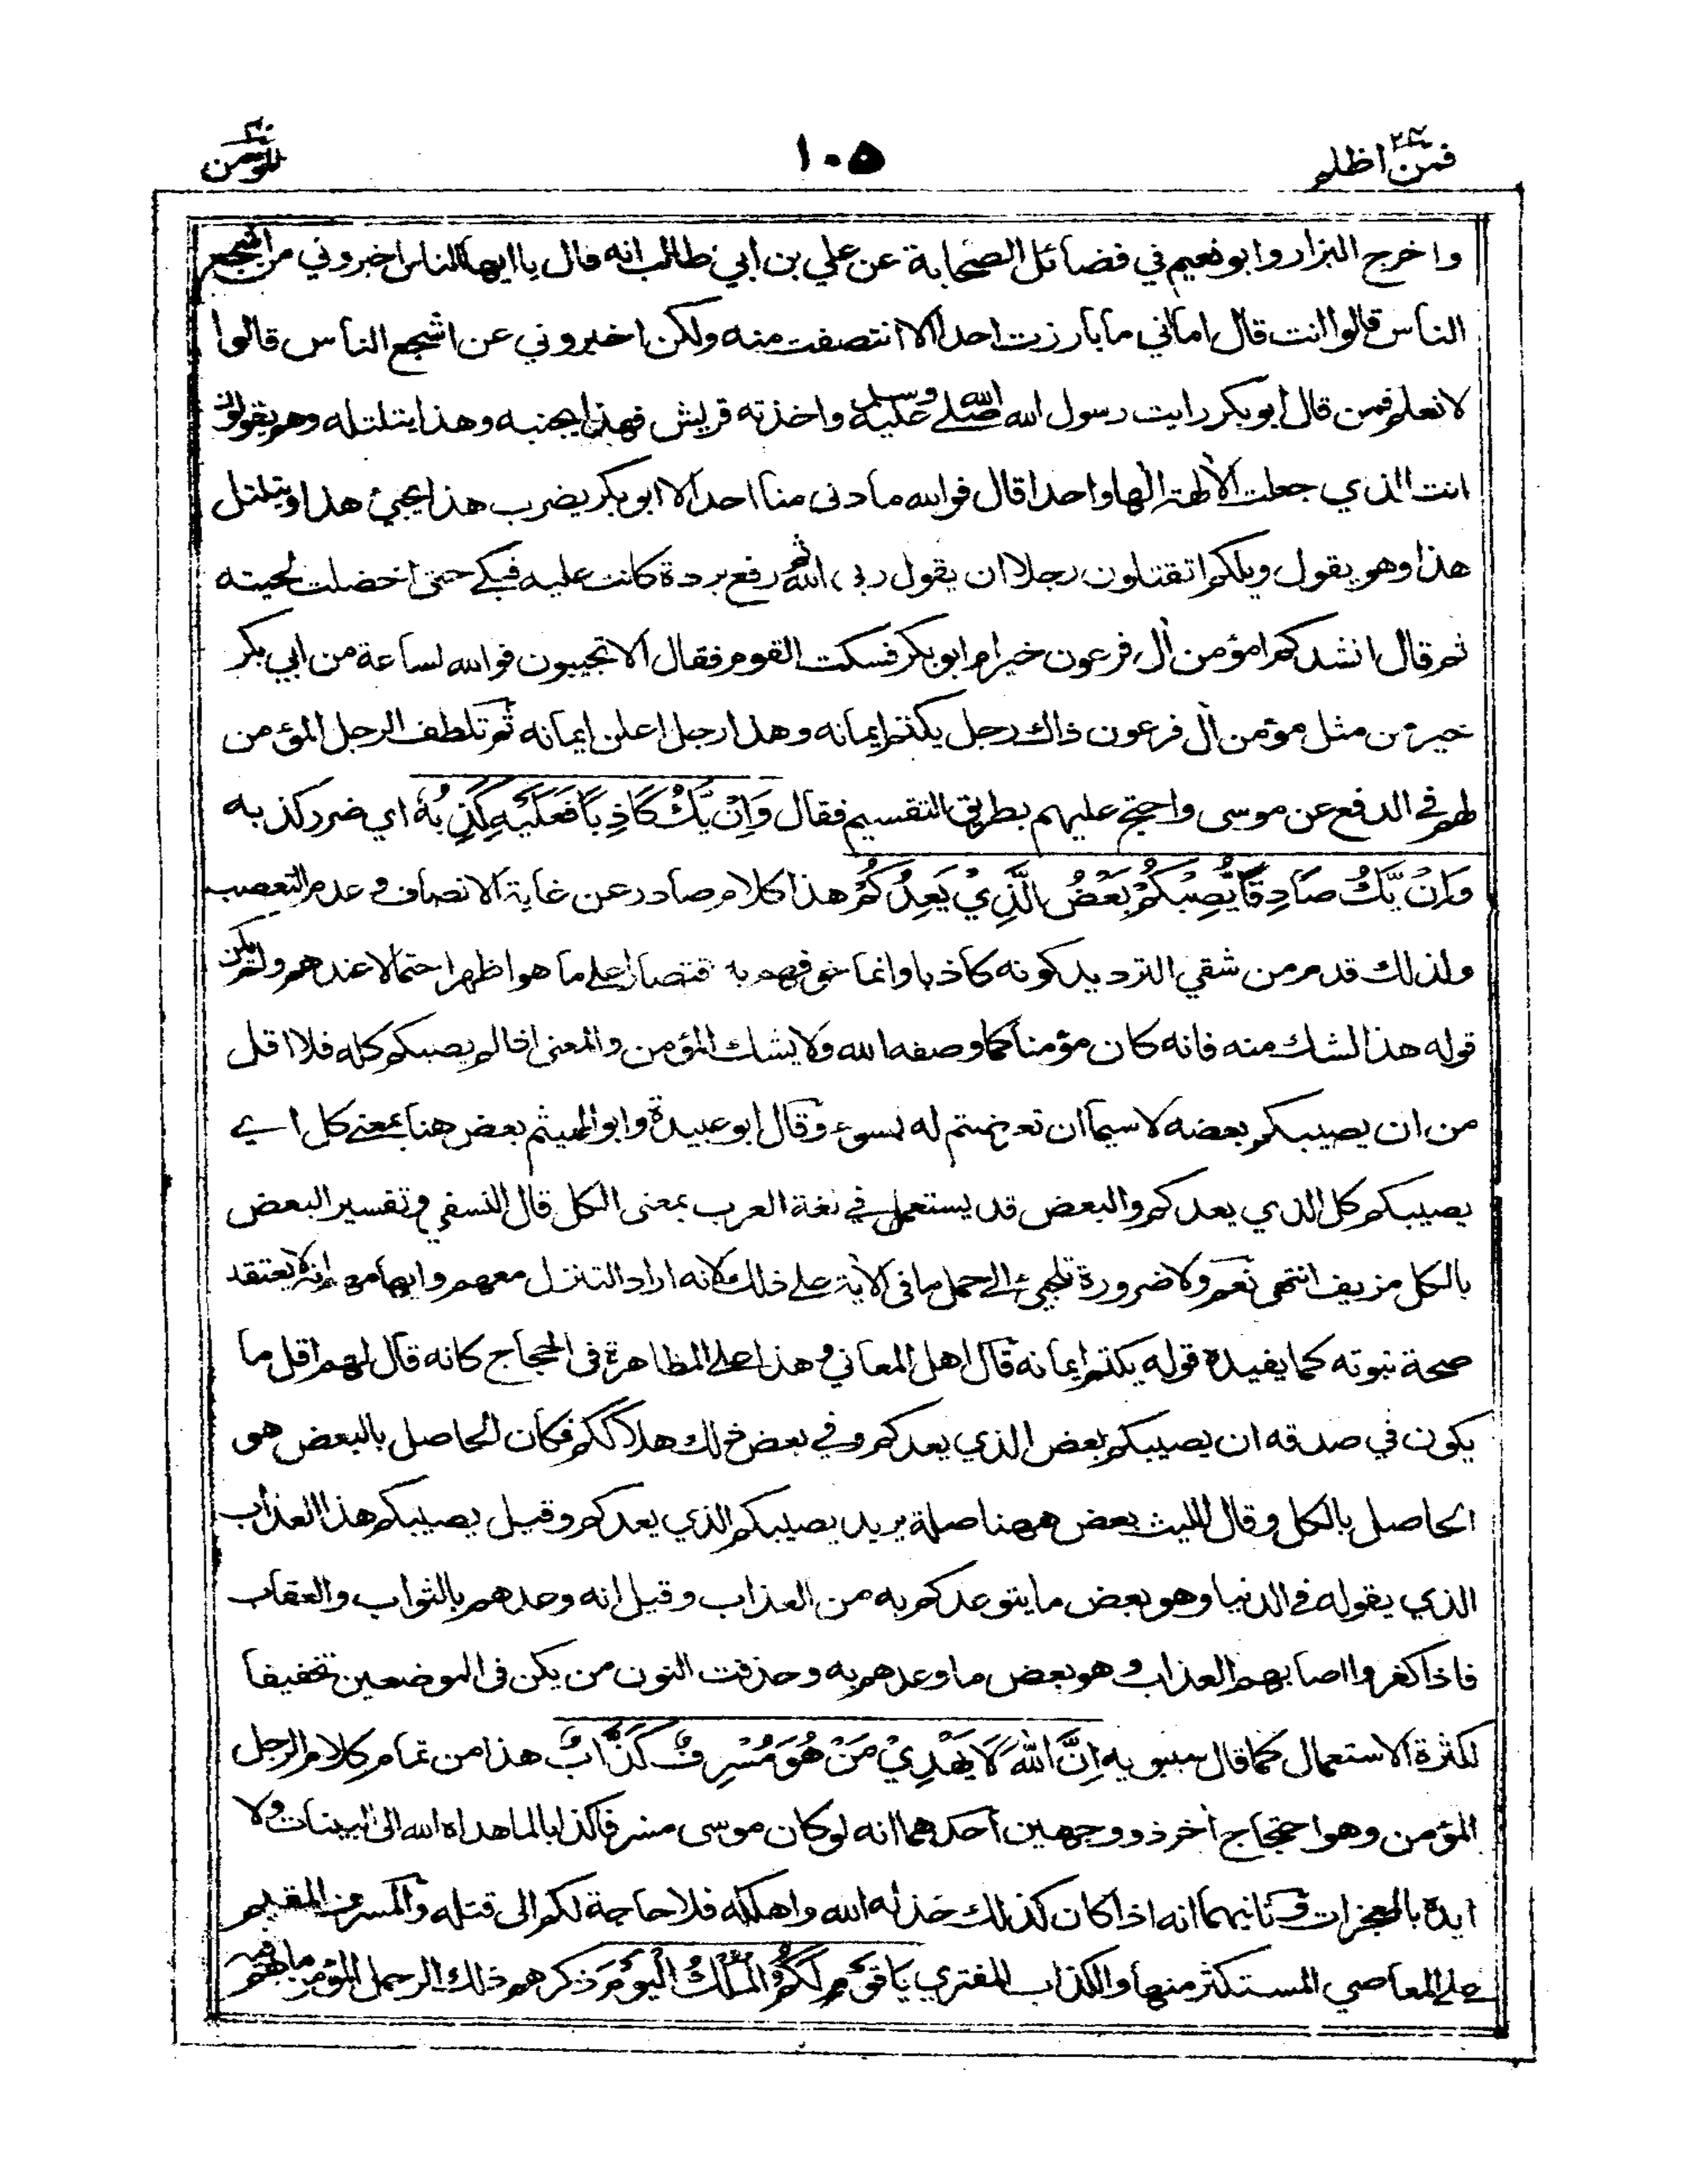 فمن اظلم ٢٤
١٠٥
المؤمن ٤٠
واخرج البزار وابو نعيم في فضائل الصحابة عن علي بن ابي طالب انه قال يا ايها الناس اخبروني من اشجع
الناس قالوا انت قال اما اني ما بارزت احدا الا انتصفت منه ولكن اخبروني عن اشجع الناس قالوا
لا نعلم فمن قال ابو بكر رايت رسول الله صلى الله عليه وسلم واخذته قريش فهذا يجنبه وهذا يتلتله وهم يقولون
انت الذي جعلت الألهة الها واحدا قال فوالله ما دنى منا احد الا ابو بكر يضرب هذا ويجيئ هذا ويتلتل
هذا وهو يقول ويلكم اتقتلون رجلا ان يقول ربي الله ثم رفع بردة كانت عليه فبكى حتى اخضلت لحيته
ثم قال انشدكم امؤمن أل فرعون خير ام ابو بكر فسكت القوم فقال الا تجيبون فوالله لساعة من ابي بكر
خير من مثل مؤمن أل فرعون ذاك رجل يكتم ايمانه وهذا رجل اعلن ايمانه ثم تلطف الرجل المؤمن
لهم في الدفع عن موسى واحتج عليهم بطريق التقسيم فقال وَاِنْ يَّكُ كَاذِبًا فَعَلَيْهِ كَذِبُهٗ اي ضرر كذبه
وَاِنْ يَّكُ صَادِقًا يُّصِبْكُمْ بَعْضُ الَّذِيْ يَعِدُكُمْ هذا كلام صادر عن غاية الانصاف و عدم التعصب
ولذلك قدم من شقي الترديد كونه كاذبا وانما خوفهم به اقتصارا على ما هو اظهر احتمالا عندهم ولم يكن
قوله هذا لشك منه فانه كان مؤمنا كما وصفه الله ولا يشك المؤمن والمعنى اذا لم يصبكم كله فلا اقل
من ان يصيبكم بعضه لا سيما ان تعرضتم له بسوء وقال ابو عبيدة وابو الهيثم بعض هنا بمعنى كل اي
يصيبكم كل الذي يعدكم والبعض قد يستعمل في لغة العرب بمعنى الكل قال النسفي وتفسير البعض
بالكل مزيف انتهى نعم ولا ضرورة تلجئ الى حمل ما فى الأية على ذلك لانه اراد التنزل معهم وايهامهم انه لا يعتقد
صحة نبوته كما يفيده قوله يكتم ايمانه قال اهل المعاني و هذا على المظاهرة فى الحجاج كانه قال لهم اقل ما
يكون في صدقه ان يصيبكم بعض الذي يعدكم وفي بعض ذلك هلاككم فكان الحاصل بالبعض هو
الحاصل بالكل وقال الليث بعض ههنا صلة يريد يصيبكم الذي يعدكم وقيل يصيبكم هذا العذاب
الذي يقوله فى الدنيا وهو بعض ما يتوعدكم به من العذاب وقيل انه وعدهم بالثواب والعقاب
فاذا كفروا اصابهم العذاب و هو بعض ما وعدهم به وحذفت النون من يكن فى الموضعين تخفيفا
لكثرة الاستعمال كما قال سيبويه اِنَّ اللّٰهَ لَا يَهْدِيْ مَنْ هُوَ مُسْرِفٌ كَذَّابٌ هذا من تمام كلام الرجل
المؤمن وهو احتجاج أخر ذو وجهين أحدهما انه لو كان موسى مسرفا كذابا لما هداه الله الى البينات ولا
ايده بالمعجزات وثانيهما انه اذا كان كذلك خذله الله واهلكه فلا حاجة لكم الى قتله والمسرف المقيم
على المعاصي المستكثر منها والكذاب المفتري يَا قَوْمِ لَكُمُ الْمُلْكُ الْيَوْمَ ذكرهم ذلك الرجل المؤمن ما هم فيه